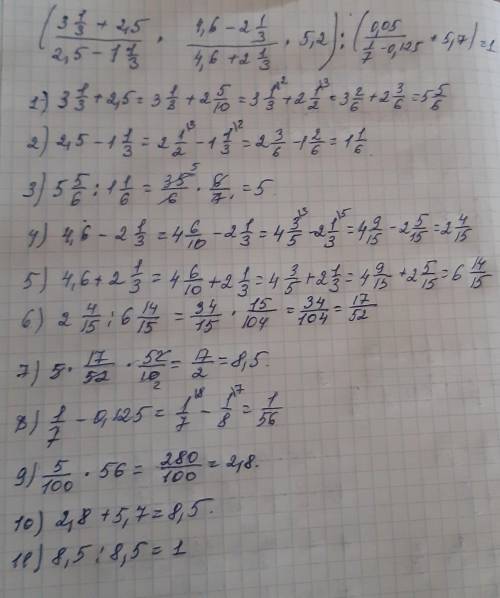 ( (3 1/3 + 2,5)/(2,5 - 1 1/3) · (4,6 - 2 1/3)/(4,6 + 2 1/3) · 5,2 ) : ( 0,05/(1/7 - 0,125) + 5,7 ) = 1
1) 3 1/3 + 2,5 = 3 1/3 + 2 5/10 = 3 1/3\2 + 2 1/2\3 = 3 2/6 + 2 3/6 = 5 5/6
2) 2,5 - 1 1/3 = 2 1/2\3 - 1 1/3\2 = 2 3/6 - 1 2/6 = 1 1/6
3) 5 5/6 : 1 1/6 = 35/6 · 6/7 = 5.
4) 4,6 - 2 1/3 = 4 6/10 - 2 1/3 = 4 3/5\3 - 2 1/3\5 = 4 9/15 - 2 5/15 = 2 4/15
5) 4,6 + 2 1/3 = 4 6/10 + 2 1/3 = 4 3/5 + 2 1/3 = 4 9/15 + 2 5/15 = 6 14/15
6) 2 4/15 : 6 14/15 = 34/15 · 15/104 = 34/104 = 17/52
7) 5 · 17/52 · 52/10 = 17/2 = 8,5.
8) 1/7 - 0,125 = 1/7\8 - 1/8\7 = 1/56
9) 5/100 · 56 = 280/100 = 2,8.
10) 2,8 + 5,7 = 8,5.
11) 8,5 : 8,5 = 1